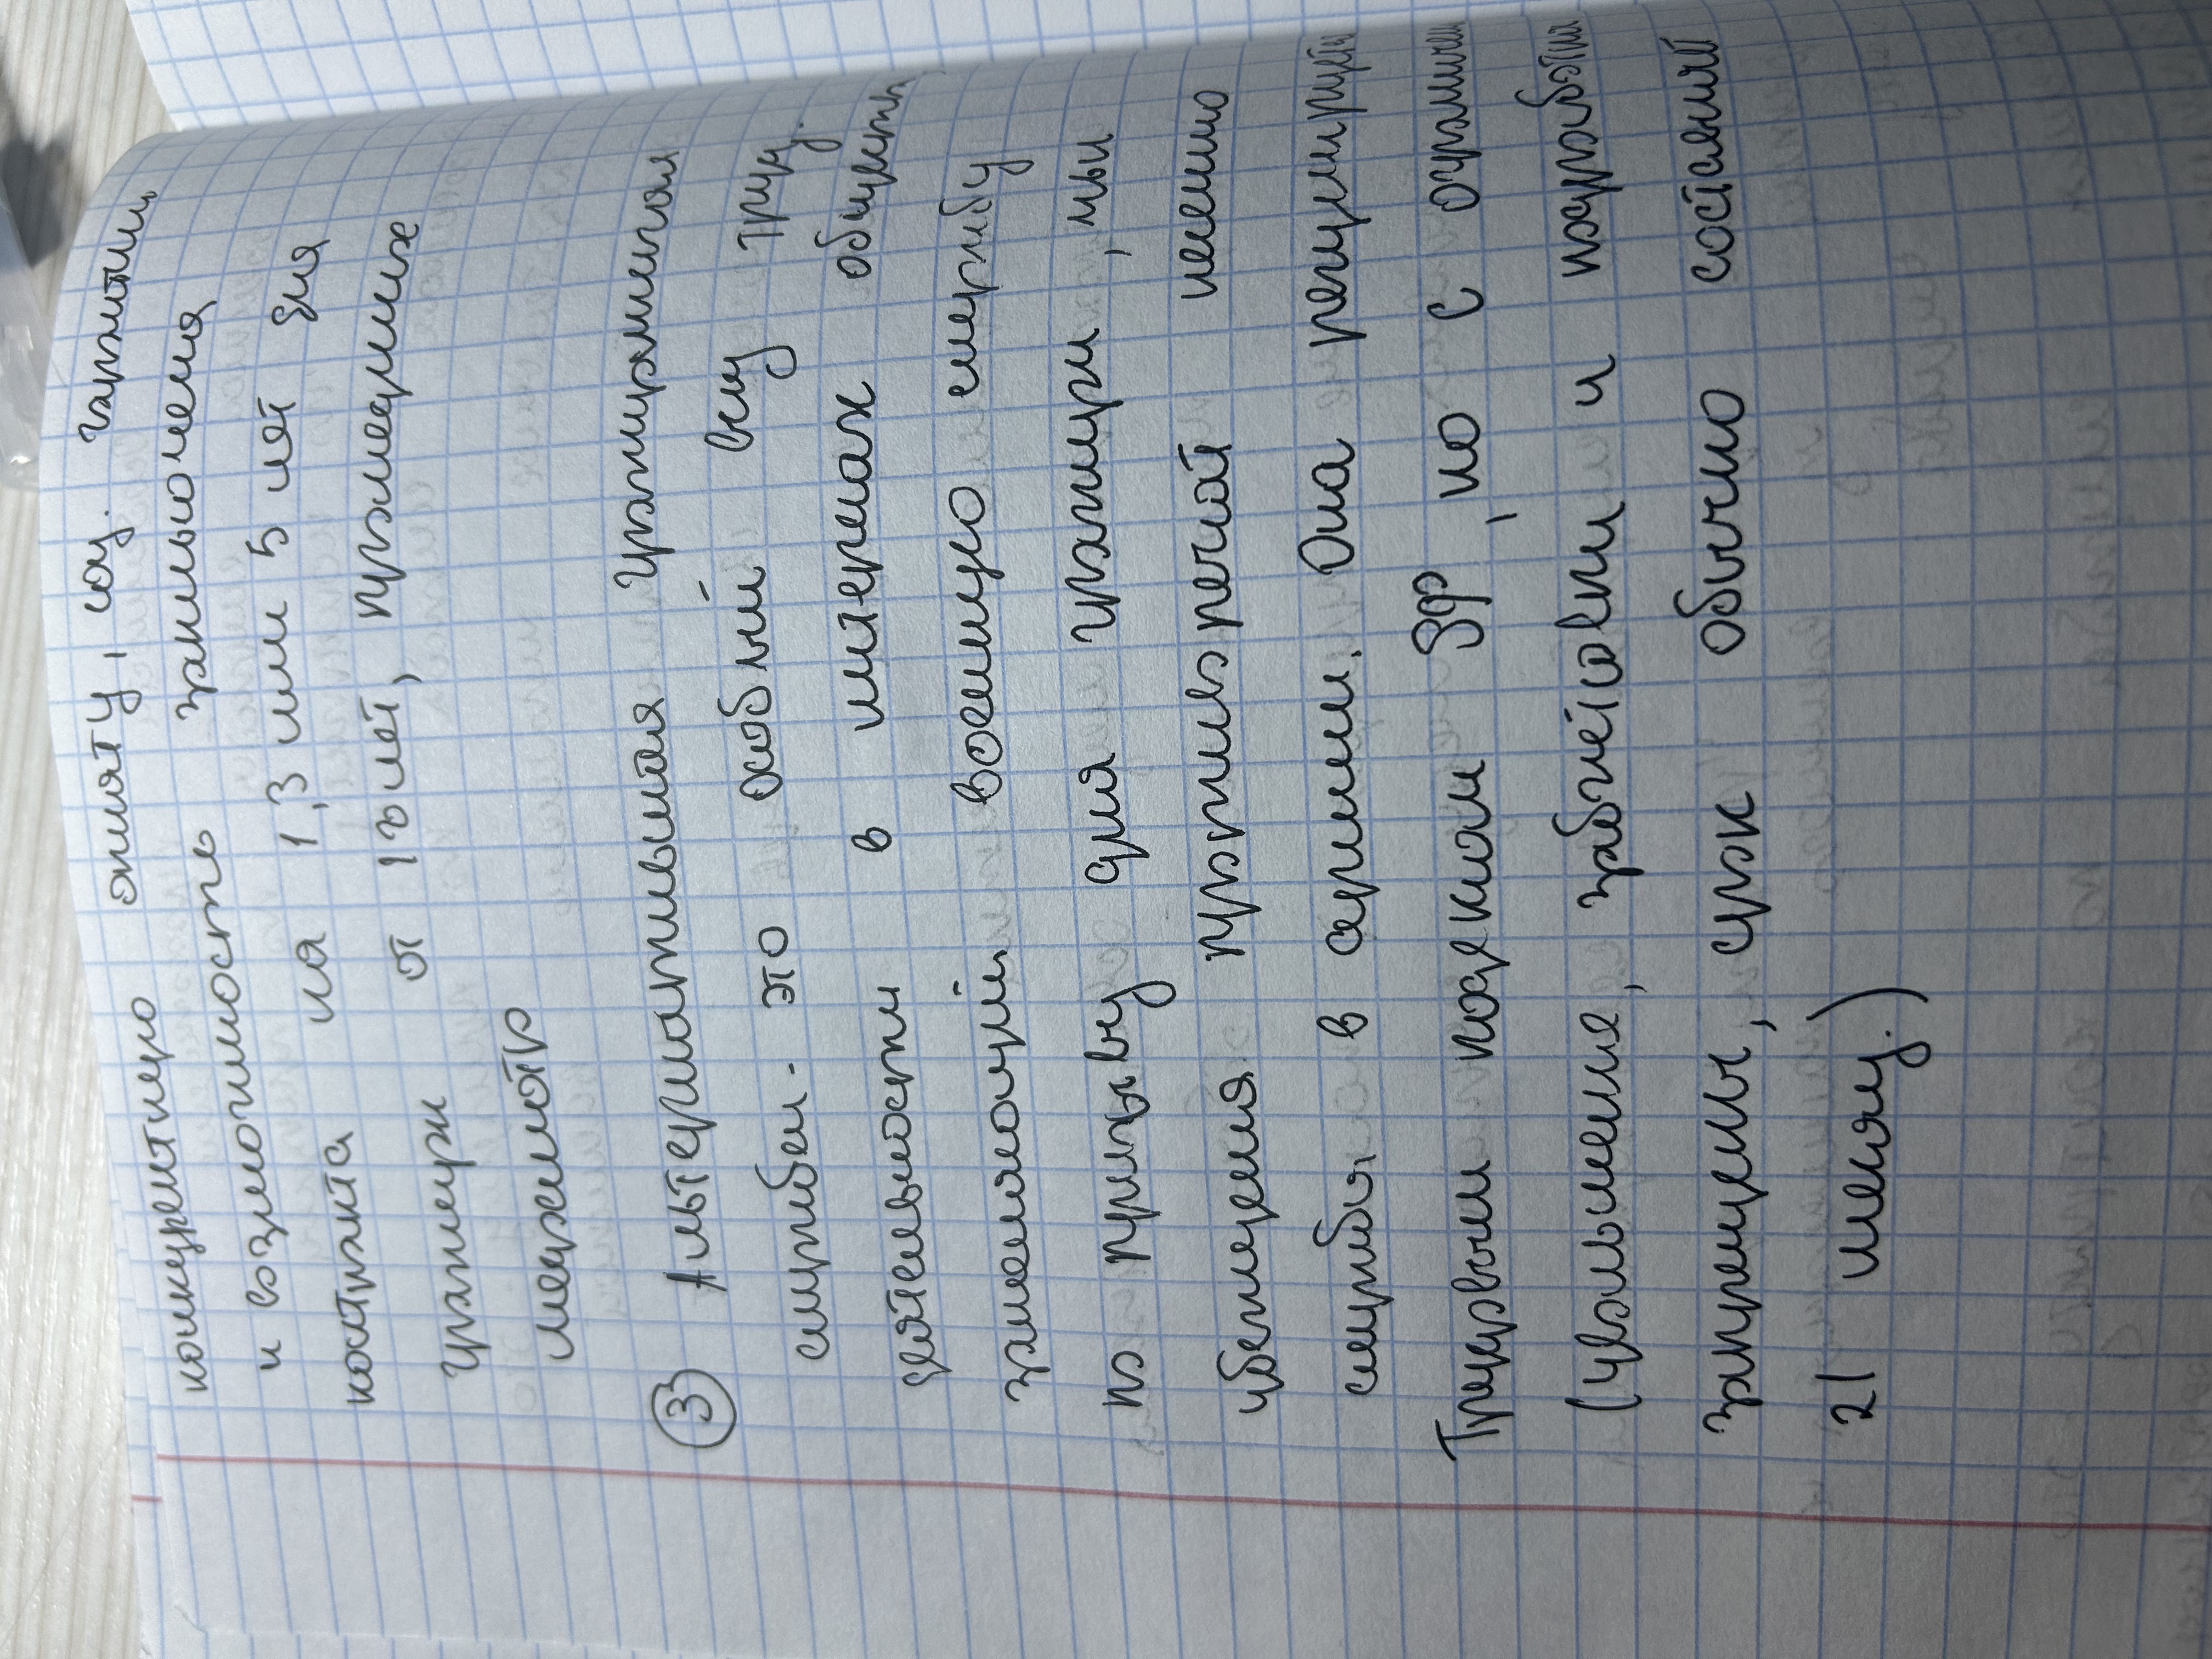 конкурентную оплату, соц. гарантии,
и возможность заключения
контракта на 1,3 или 5 лет для
граждан от 18 лет, прошедших
медосмотр
③ Альтернативная гражданская
служба - это особый вид труд.
деятельности в интересах общества
заменяющий военную службу
по призыву для граждан, чьи
убеждения противоречат несению
службы в армии. Она регулируется
Трудовым кодексом РФ, но с огранич
(увольнение, забастовки и подработки
запрещены, срок обычно составляет
21 месяц.)